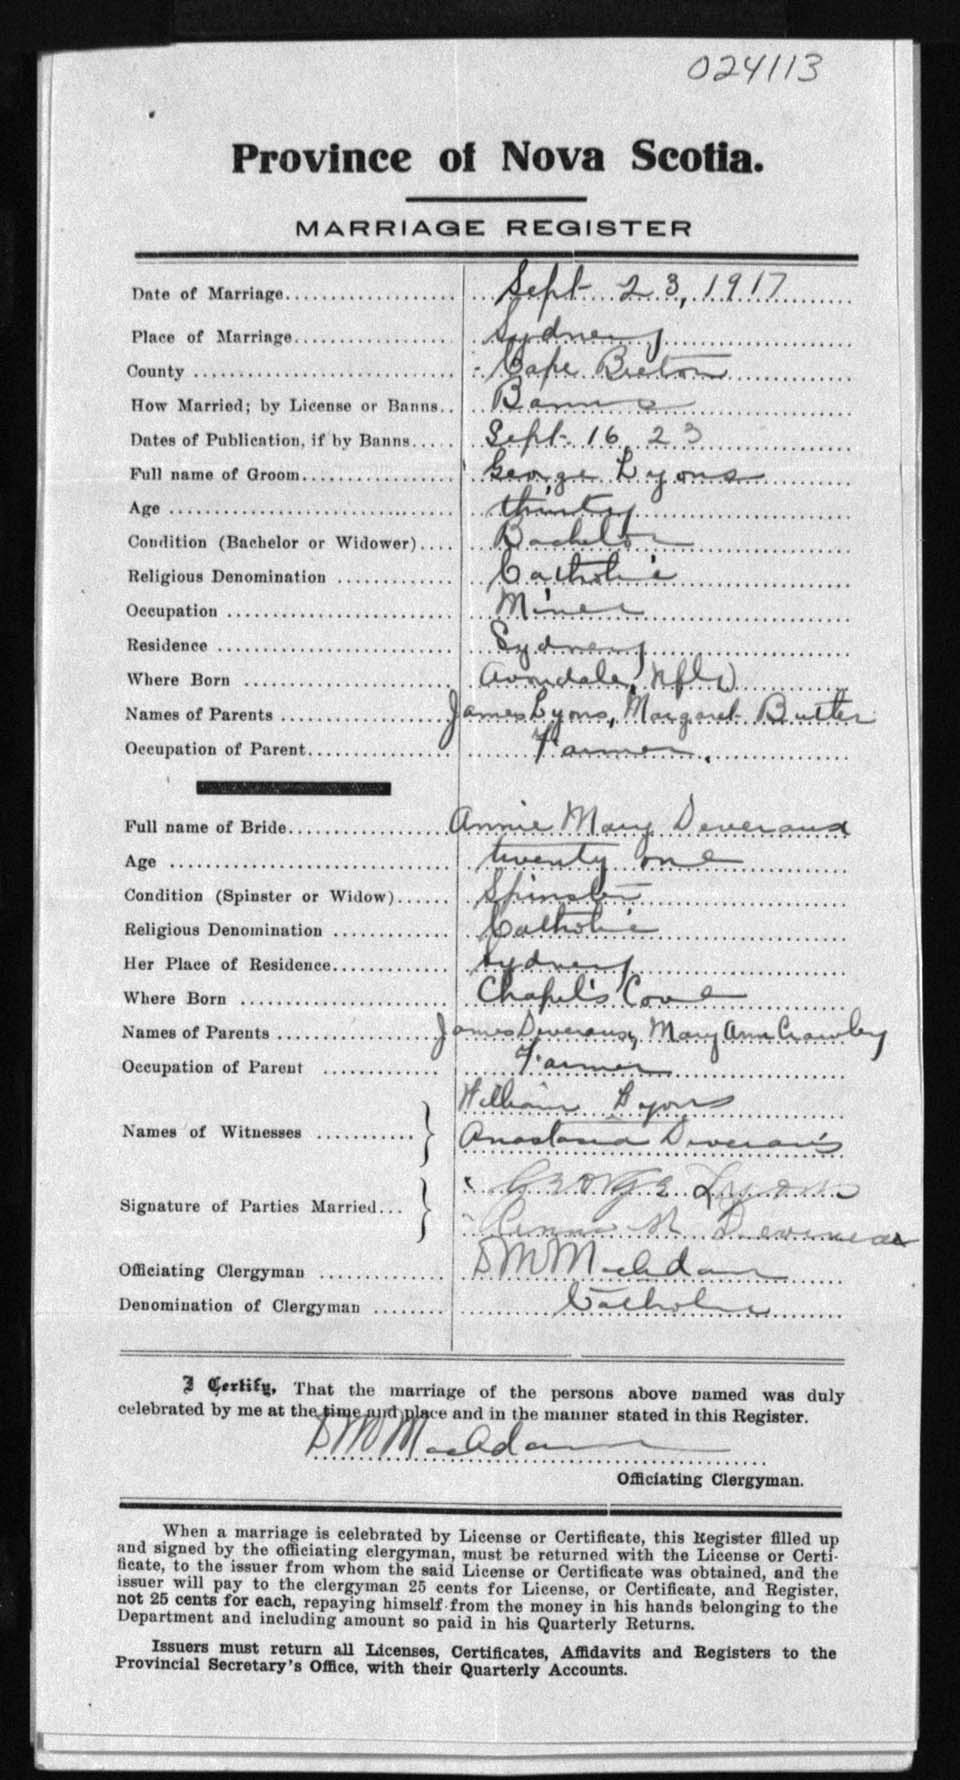 024113
Province of Nova Scotia.
MARRIAGE REGISTER
Date of Marriage Sept 23, 1917
Place of Marriage Sydney
County Cape Breton
How Married; by License or Banns Banns
Dates of Publication, if by Banns Sept. 16, 23
Full name of Groom George Lyons
Age thirty
Condition (Bachelor or Widower) Bachelor
Religious Denomination Catholic
Occupation Miner
Residence Sydney
Where Born Avondale, Nfld
Names of Parents James Lyons, Margaret Butler
Occupation of Parent Farmer.
Full name of Bride Annie Mary Deveraux
Age twenty one
Condition (Spinster or Widow) Spinster
Religious Denomination Catholic
Her Place of Residence Sydney
Where Born Chapel's Cove
Names of Parents James Deveraux, Mary Ann Crawley
Occupation of Parent Farmer
William Lyons
Names of Witnesses
Anastasia
George Lyons
Signature of Parties Married
M
Officiating Clergyman D M MacAdam
Denomination of Clergyman Catholic
I Certify, That the marriage of the persons above named was duly
celebrated by me at the time and place and in the manner stated in this Register.
D M MacAdam
Officiating Clergyman.
When a marriage is celebrated by License or Certificate, this Register filled up
and signed by the officiating clergyman, must be returned with the License or Certi-
ficate, to the issuer from whom the said License or Certificate was obtained, and the
issuer will pay to the clergyman 25 cents for License, or Certificate, and Register,
not 25 cents for each, repaying himself from the money in his hands belonging to the
Department and including amount so paid in his Quarterly Returns.
Issuers must return all Licenses, Certificates, Affidavits and Registers to the
Provincial Secretary's Office, with their Quarterly Accounts.